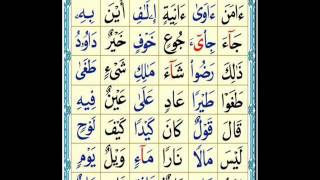 ءَامَنَ ءَاوٰى ءَانِيَةٍ اٖلٰفِ أَيْنَ بِهٖ
جَآءَ جِایْٓءَ جُوْعٍ خَوْفٍ خَيْرٌ دَاوٗدُ
ذٰلِكَ رَضُوْا شَآءَ مٰلِكِ شَیْءٍ طَغٰى
طَغَوْا طَيْرًا عَادٍ عَلٰى عَيْنٌ فِيْهِ
قَالَ قَوْلٌ كَانَ كَيْدًا كَيْفَ لَوْحٍ
لَيْسَ مَالًا نَارًا مَآءٍ وَيْلٌ يَوْمٍ